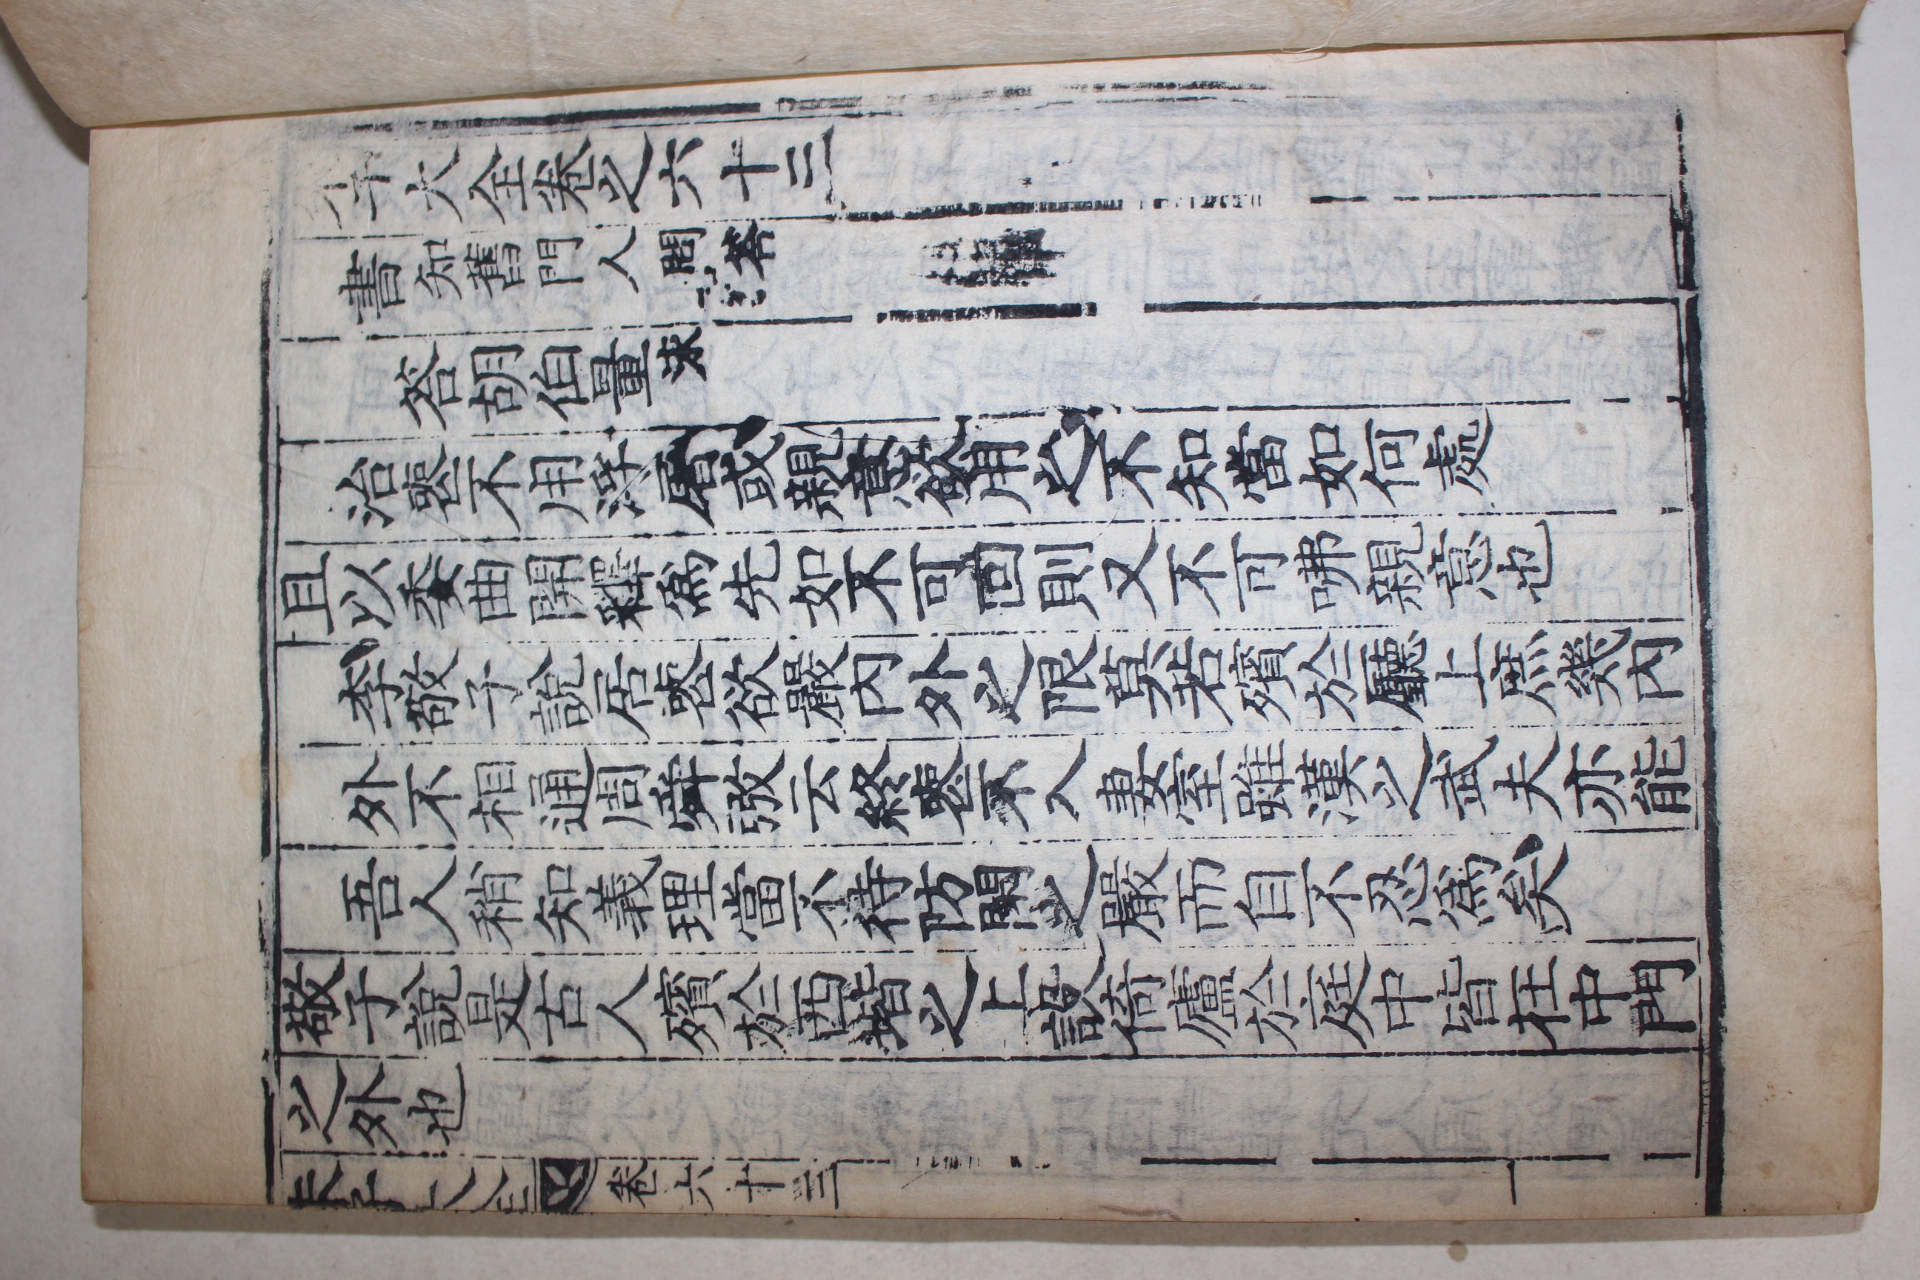 子大全卷之六十三
書 知舊門人問答
答胡伯量 泳
治喪不用浮屠或親意欲用之不知當如何處
且以委曲開釋爲先如不可回則又不可咈親意也
李敬子說居喪欲嚴內外之限莫若殯於廳上庶幾內
外不相通周舜弼云終喪不入妻室雖漢之武夫亦能
吾人稍知義理當不待防閑之嚴而自不忍爲矣
敬子說是古人殯於西階之上設倚廬於庭中皆在中門
之外也
朱子大全 卷六十三 一